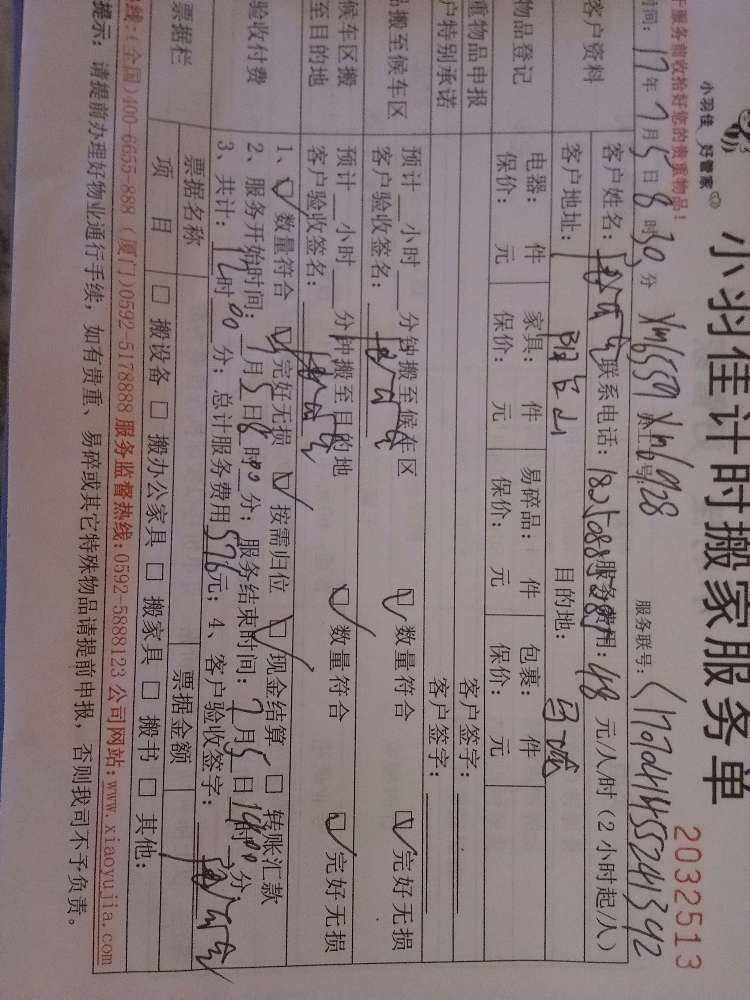 小羽佳 好管家
小羽佳计时搬家服务单
2032513
服务前收拾好您的贵重物品！
时间：17年7月5日8时30分 Xm6559 Xm6928 服务联号：
客户资料
客户姓名： 联系电话： 服务费用：48元/人/时（2小时起/人）
客户地址： 目的地：
物品登记
电器： 件 家具： 件 易碎品： 件 包裹： 件
保价： 元 保价： 元 保价： 元 保价： 元
重物品申报 客户签字：
户特别承诺 客户签字：
搬至候车区
预计__小时__分钟搬至候车区 ☑数量符合 ☑完好无损
客户验收签名：
候车区搬至目的地
预计__小时__分钟搬至目的地 ☑数量符合 ☑完好无损
客户验收签名：
验收付费
1、☑数量符合 ☑完好无损 ☑按需归位 ☑现金结算 □转账汇款
2、服务开始时间：7月5日8时00分；服务结束时间：7月5日14时00分；
3、共计：12时00分；总计服务费用576元；4、客户验收签字：
票据栏
票据名称 票据金额
项目 □搬设备 □搬办公家具 □搬家具 □搬书 □其他：
线：（全国）400-6655-888（厦门）0592-5178888 服务监督热线：0592-5888123 公司网站：www.xiaoyujia.com
提示：请提前办理好物业通行手续，如有贵重、易碎或其它特殊物品请提前申报，否则我司不予负责。